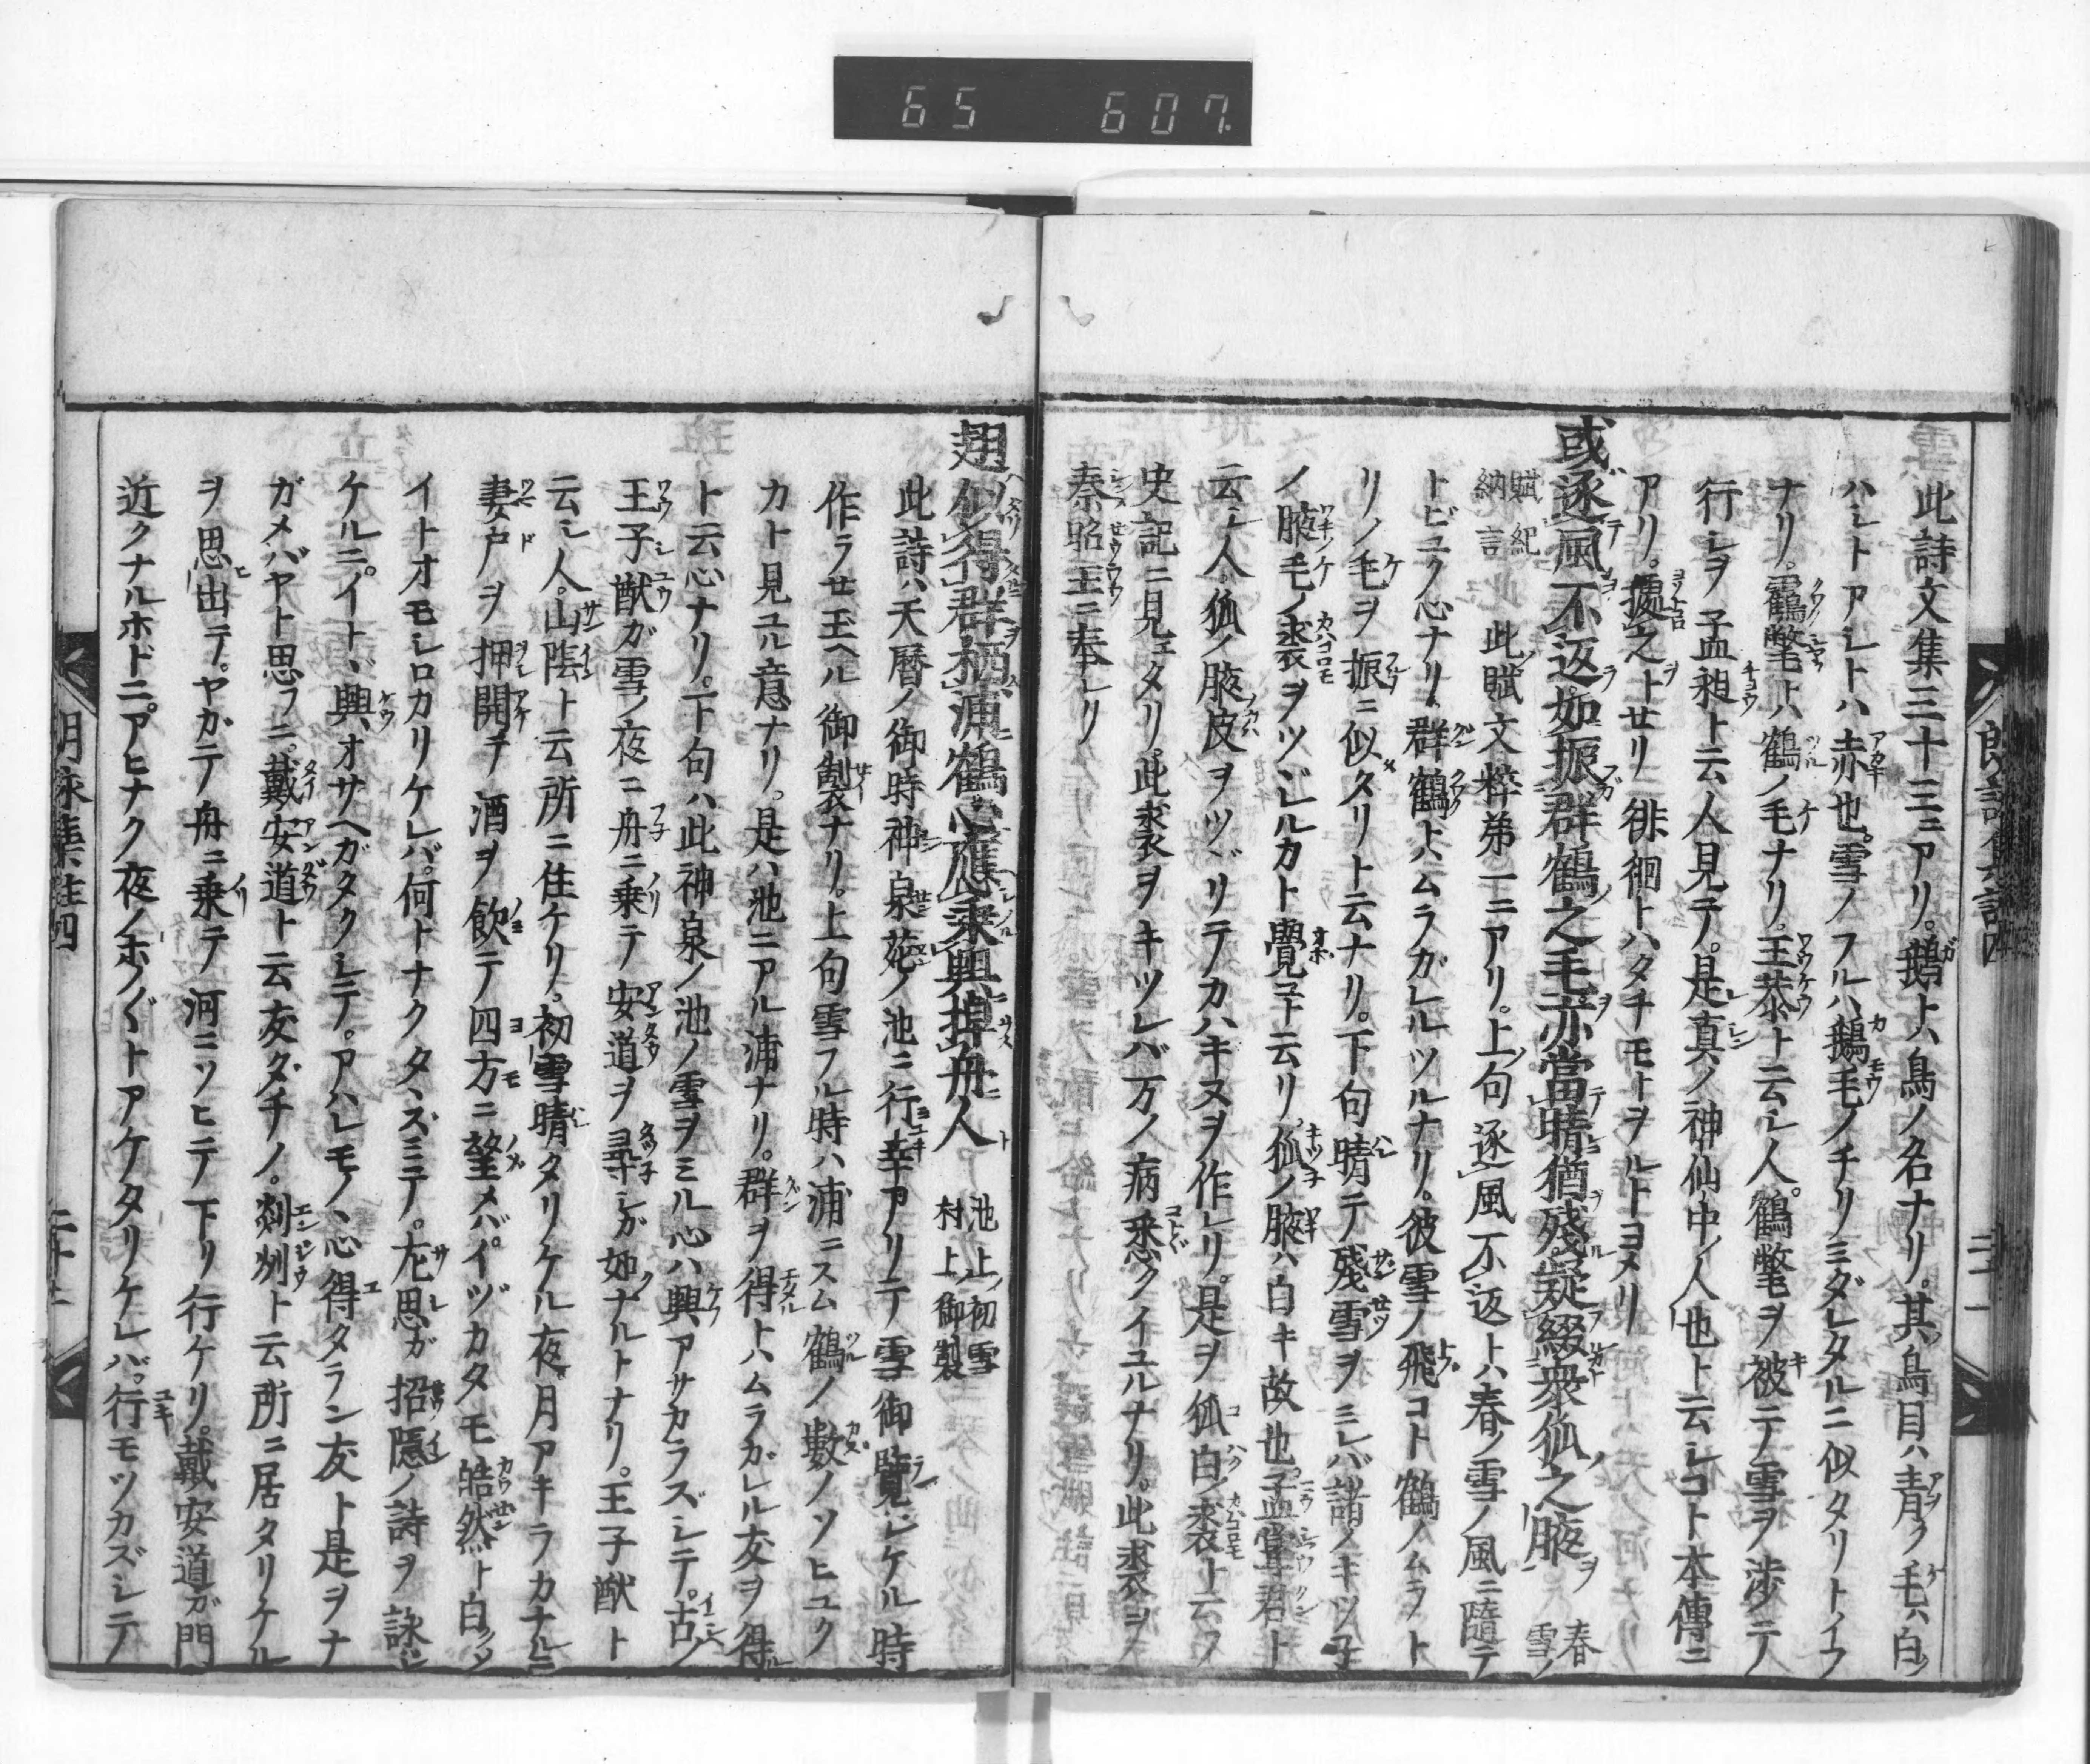 65 607.
此詩文集三十三ニアリ。鵝トハ鳥ノ名ナリ。其鳥目ハ青ク毛ハ白ク
ハシトアシトハ赤也。雪ノフルハ鵝毛ノチリミダレタルニ似タリトイフ
ナリ。鶴氅トハ鶴ノ毛ナリ。王恭ト云シ人。鶴氅ヲ被テ雪ヲ渉テ
行シヲ孟昶ト云人見テ。是真ノ神仙中ノ人也ト云シコト本傳ニ
アリ。據之トセリ徘徊トハタチモトヲルトヨメリ
或逐風不返如振群鶴之毛亦當晴猶殘疑綴衆狐之腋 春雪ノ
賦紀納言 此賦文粹第一ニアリ。上句逐風不返トハ春ノ雪ノ風ニ隨テ
トビユク心ナリ。群鶴トハムラガレルツルナリ。彼雪ノ飛コト鶴ノムラト
リノ毛ヲ振ニ似タリト云ナリ。下句晴テ殘雪ヲミレバ諸ノキツ子
ノ腋毛ノ裘ヲツヾレルカト覺ユト云リ。狐ノ腋ハ白キ故也。孟甞君ト
云シ人。狐ノ腋皮ヲツヾリテカハキヌヲ作レリ。是ヲ狐白ノ裘ト云フ
史記ニ見エタリ。此裘ヲキツレバ万ノ病悉クイユルナリ。此裘ヲ
秦昭王ニ奉レリ
翅似得群栖浦鶴心應乘興掉舟人 池上ノ初雪 村上ノ御製
此詩ハ天暦ノ御時神泉苑ノ池ニ行幸アリテ雪御覽シケル時
作ラセ玉ヘル御製ナリ。上句雪フル時ハ浦ニスム鶴ノ數ノソヒユク
カト見ユル意ナリ。是ハ池ニアル浦ナリ。群ヲ得トハムラガレル友ヲ得ル
ト云心ナリ。下句ハ此神泉ノ池ノ雪ヲミル心ハ興アサカラズシテ。古ノ
王子猷ガ雪ノ夜ニ舟ニ乗テ安道ヲ尋シガ如クナルトナリ。王子猷ト
云シ人。山陰ト云所ニ住ケリ。初雪晴タリケル夜。月アキラカナルニ
妻戸ヲ押開テ酒ヲ飲テ四方ニ望メバ。イヅカタモ皓然ト白クメ
イトオモシロカリケレバ。何トナクタヽズミテ。左思ガ招隱ノ詩ヲ詠シ
ケルニ。イトヾ興オサヘガタクシテ。アハレモノヽ心得タラン友ト是ヲナ
ガメバヤト思フニ。戴安道ト云友ダチノ。剡州ト云所ニ居タリケル
ヲ思出テ。ヤガテ舟ニ乗テ河ニソヒテ下リ行ケリ。戴安道ガ門
近クナルホドニ。アヒナク夜ノホノ〴〵トアケタリケレバ。行モツカズシテ